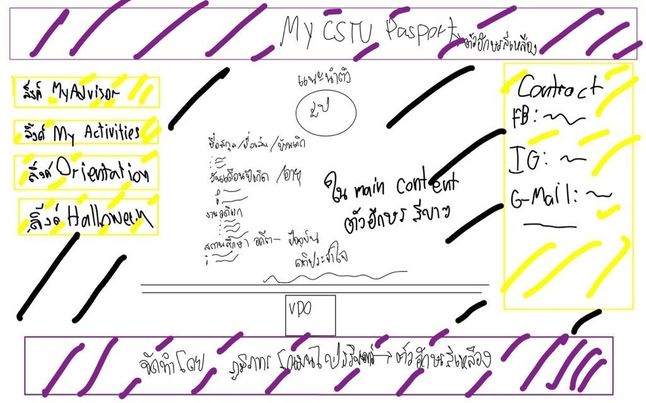 My CSTU Passport → ตัวอักษรสีเหลือง
ลิ้งค์ MyAdvisor
ลิ้งค์ My Activities
ลิ้งค์ Orientation
ลิ้งค์ Halloween
แนะนำตัว
รูป
ชื่อสกุล/ชื่อเล่น/
วันเดือนปีเกิด/อายุ
งานอดิเรก
สถานศึกษา อดีต - ปัจจุบัน
คติประจำใจ
ใน main content
ตัวอักษรสีขาว
Contract
FB:
IG:
G-Mail:
VDO
จัดทำโดย → ตัวอักษรสีเหลือง